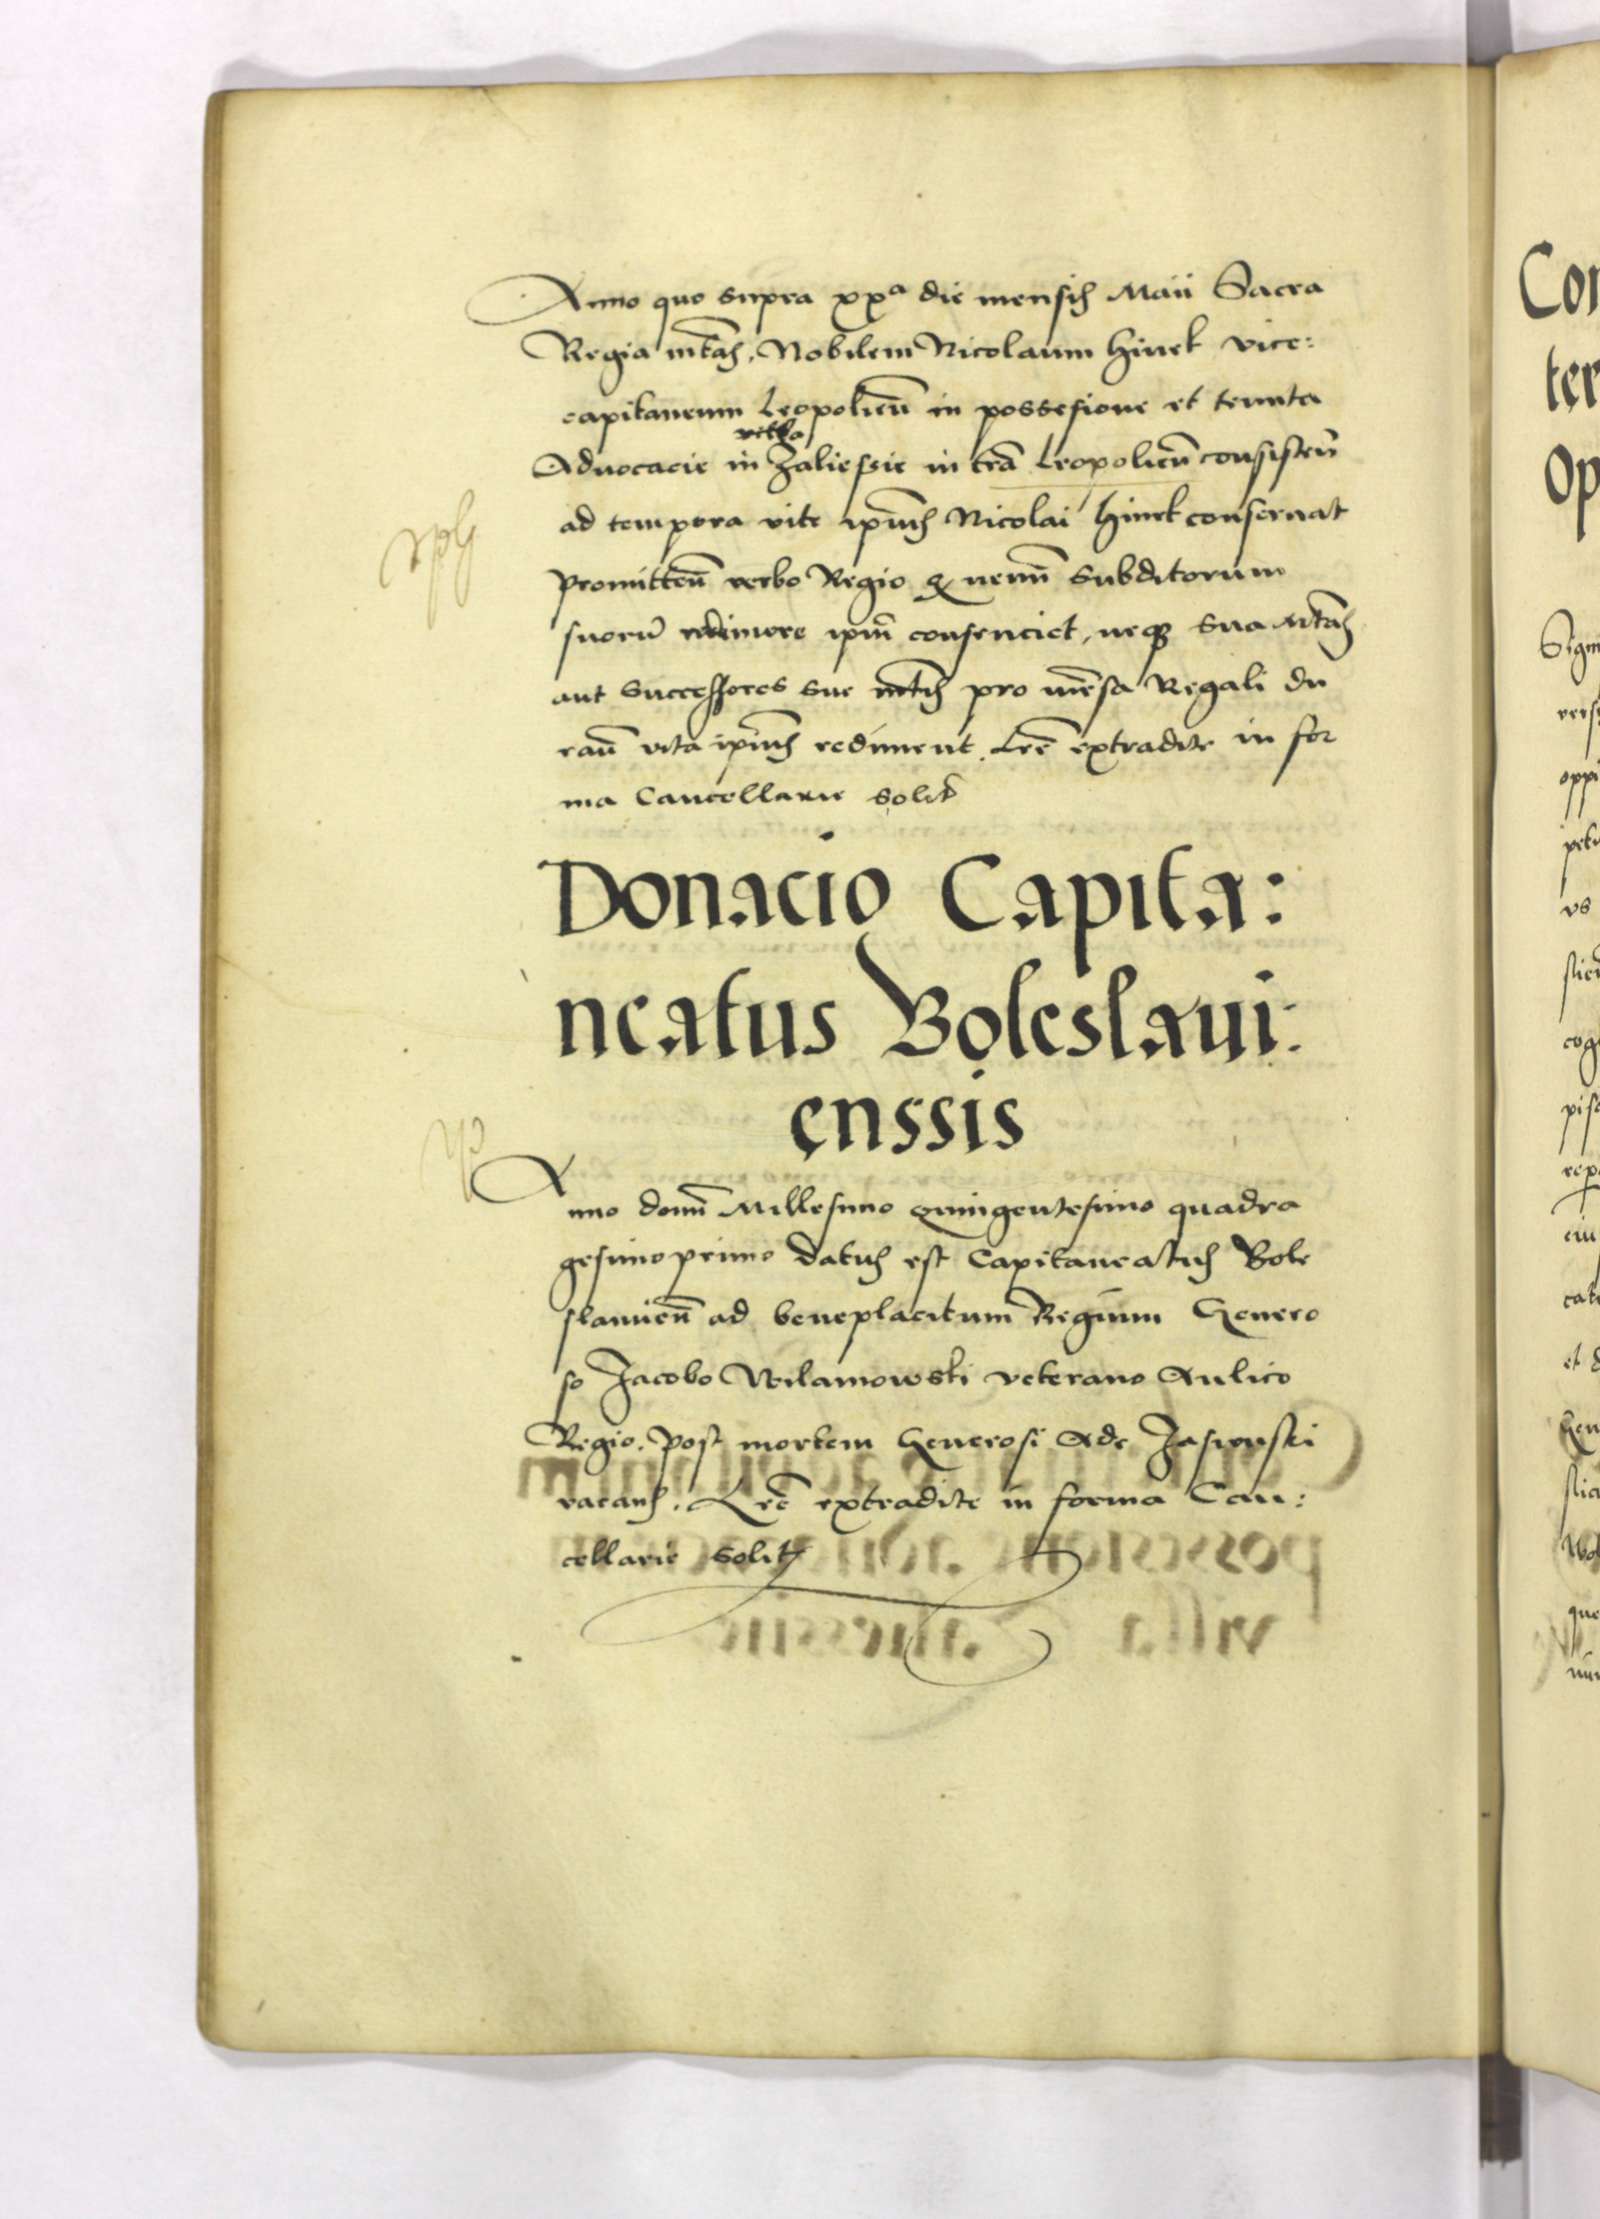 Anno quo supra xxª die mensis Maii Sacra
Regia mtas, Nobilem Nicolaum Hinek vice:
capitaneum Leopolien̄ in possesione et tenuta
villa
Advocacie in Zaliessie in trā Leopolien̄ consisten̄
ad tempora vite ipius Nicolai Hinek conservat
promitten̄ verbo Regio q nemī subditorum
suorū redimere ipm̄ consenciet, neq sua Mtas
aut successores sue mtis pro mēsa Regali du
ran̄ vita ipius rediment. Lrē extradite in for
ma Cancellarie solit
Donacio Capita:
neatus Boleslaui:
enssis
Anno domī Millesimo quingentesimo quadra
gesimo primo datus est Capitaneatus Bole
slauien̄ ad beneplacitum Regium Genero
so Jacobo Wilamowski veterano Aulico
Regio, post mortem Generosi Ade
vacans. Lrē extradite in forma Can:
cellarie solit